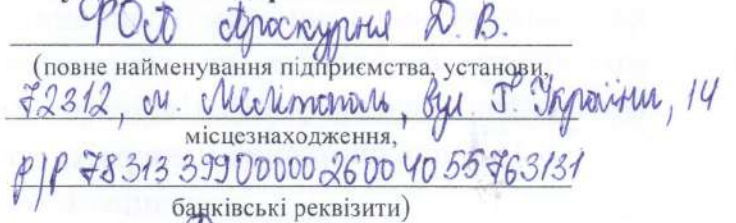 ФОП Проскурня Д. В.
(повне найменування підприємства, установи,
72312, м. Мелітополь, вул. Г. України, 14
місцезнаходження,
р/р 78 313 399 00000 2600 40 55 763131
банківські реквізити)